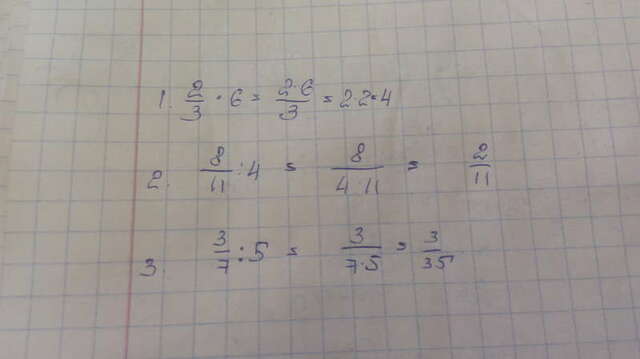 1. 2/3 · 6 = 2·6/3 = 2·2=4
2. 8/11 : 4 = 8/4·11 = 2/11
3. 3/7 : 5 = 3/7·5 = 3/35